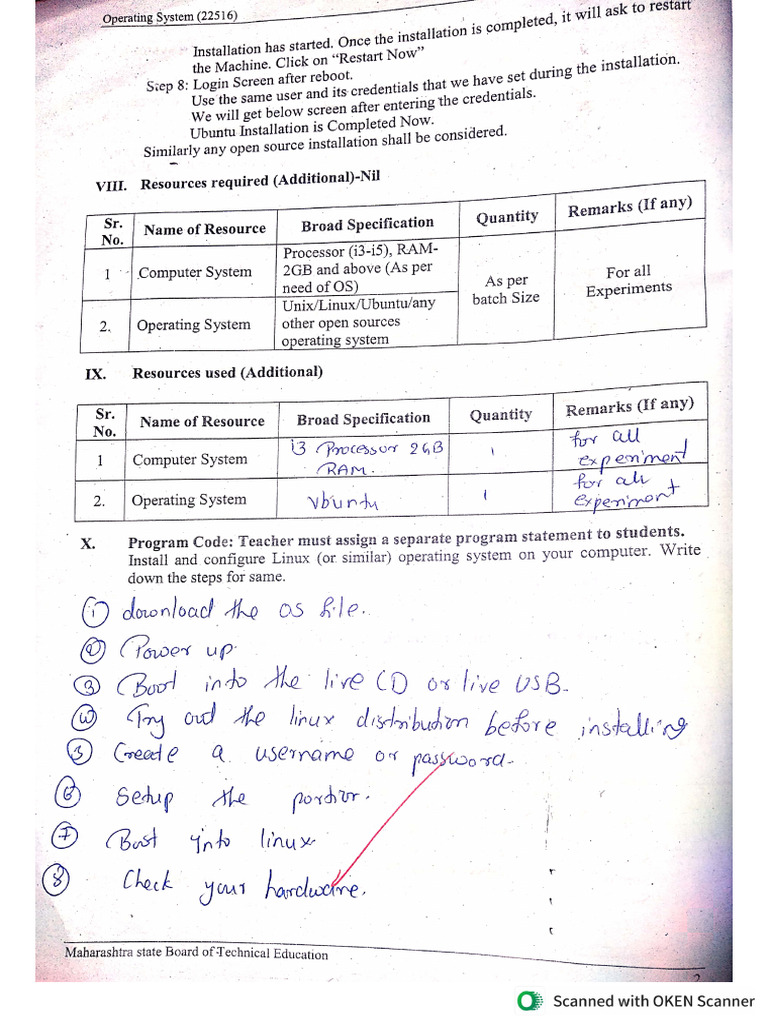 Operating System (22516)
Installation has started. Once the installation is completed, it will ask to restart
the Machine. Click on “Restart Now”
Step 8: Login Screen after reboot.
Use the same user and its credentials that we have set during the installation.
We will get below screen after entering the credentials.
Ubuntu Installation is Completed Now.
Similarly any open source installation shall be considered.
VIII. Resources required (Additional)-Nil
Sr. No. Name of Resource Broad Specification Quantity Remarks (If any)
1 Computer System Processor (i3-i5), RAM-2GB and above (As per need of OS) As per batch Size For all Experiments
2. Operating System Unix/Linux/Ubuntu/any other open sources operating system
IX. Resources used (Additional)
Sr. No. Name of Resource Broad Specification Quantity Remarks (If any)
1 Computer System i3 Processor 2GB RAM. 1 for all experiment
2. Operating System Ubuntu 1 for all experiment
X. Program Code: Teacher must assign a separate program statement to students.
Install and configure Linux (or similar) operating system on your computer. Write
down the steps for same.
① download the OS file.
② Power up.
③ Boot into the live CD or live USB.
④ Try out the linux distribution before installing
⑤ Create a username or password.
⑥ Setup the
⑦ Boot into linux.
⑧ Check your hardware.
Maharashtra state Board of Technical Education
2
Scanned with OKEN Scanner